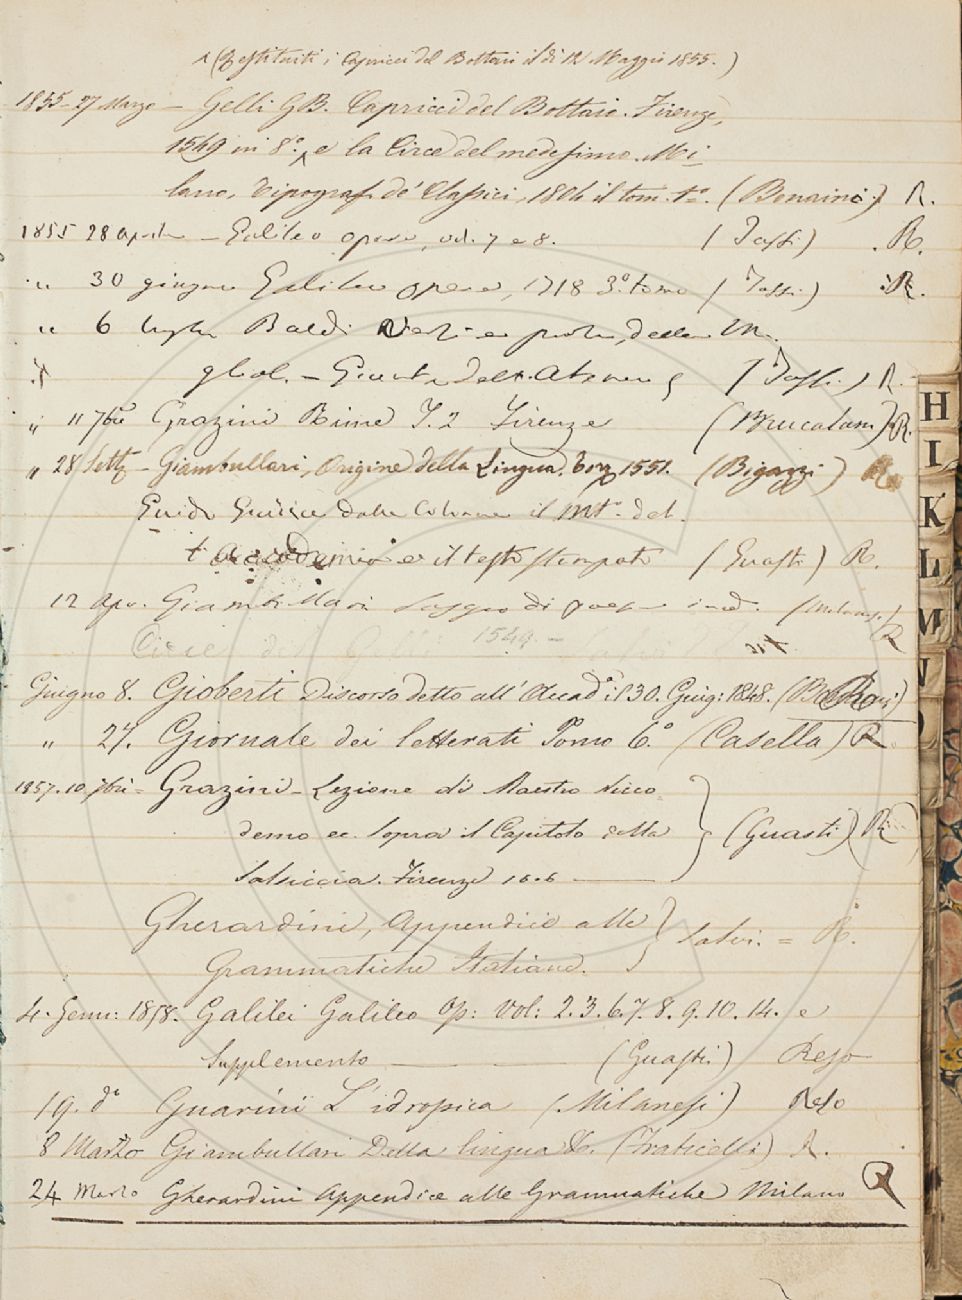 1 (Restituiti i Capricci del Bottaio il dì 12 Maggio 1855.)
1855 - 27 Marzo - Gelli G.B. Capricci del Bottaio. Firenze,
1549 in 8°. e la Circe del medesimo. Mi
lano, Tipograf. de' Classici, 1804 il tom. 1°. (Bonaini) R.
1855 28 aprile - Galileo opere, vol. 7 e 8. (Tassi) R.
" 30 giugno Galileo opere, 1718 3° tomo (Tassi) R.
" 6 luglio Baldi Versi e prose, delle
(Tassi) R.
" 11 7bre Grazini Rime T. 2 Firenze R.
" 28 Sett. - Giambullari, Origine della Lingua. 1551. (Bigazzi) R
Guido Giudice dalle Colonne il Mto. del.
t accademia e il testo stampato (Guasti) R.
12 Apr. Giambullari Saggio di poesie ined. (Milanesi) R
Circe del Gelli 1549. -
Giugno 8. Gioberti Discorso detto all' Accad. il 30. Giug: 1848.
" 27. Giornale dei letterati Tomo 6.° (Casella) R.
1857. 10. 7bre = Grazini - Lezione di Maestro Nicco
demo ec. sopra il Capitolo della (Guasti) R
Salsiccia. Firenze 1606
Gherardini, Appendice alle Salvi. = R.
Grammatiche Italiane.
4. Genn: 1858. Galilei Galileo Op: Vol: 2. 3. 6. 7. 8. 9. 10. 14. e
Supplemento (Guasti) Reso
19. d° Guarini L'idropica (Milanesi) Reso
8 Marzo Giambullari Della lingua &c. (Fraticelli) R.
24 Marzo Gherardini Appendice alle Grammatiche Milano R
H
I
K
L
M
N